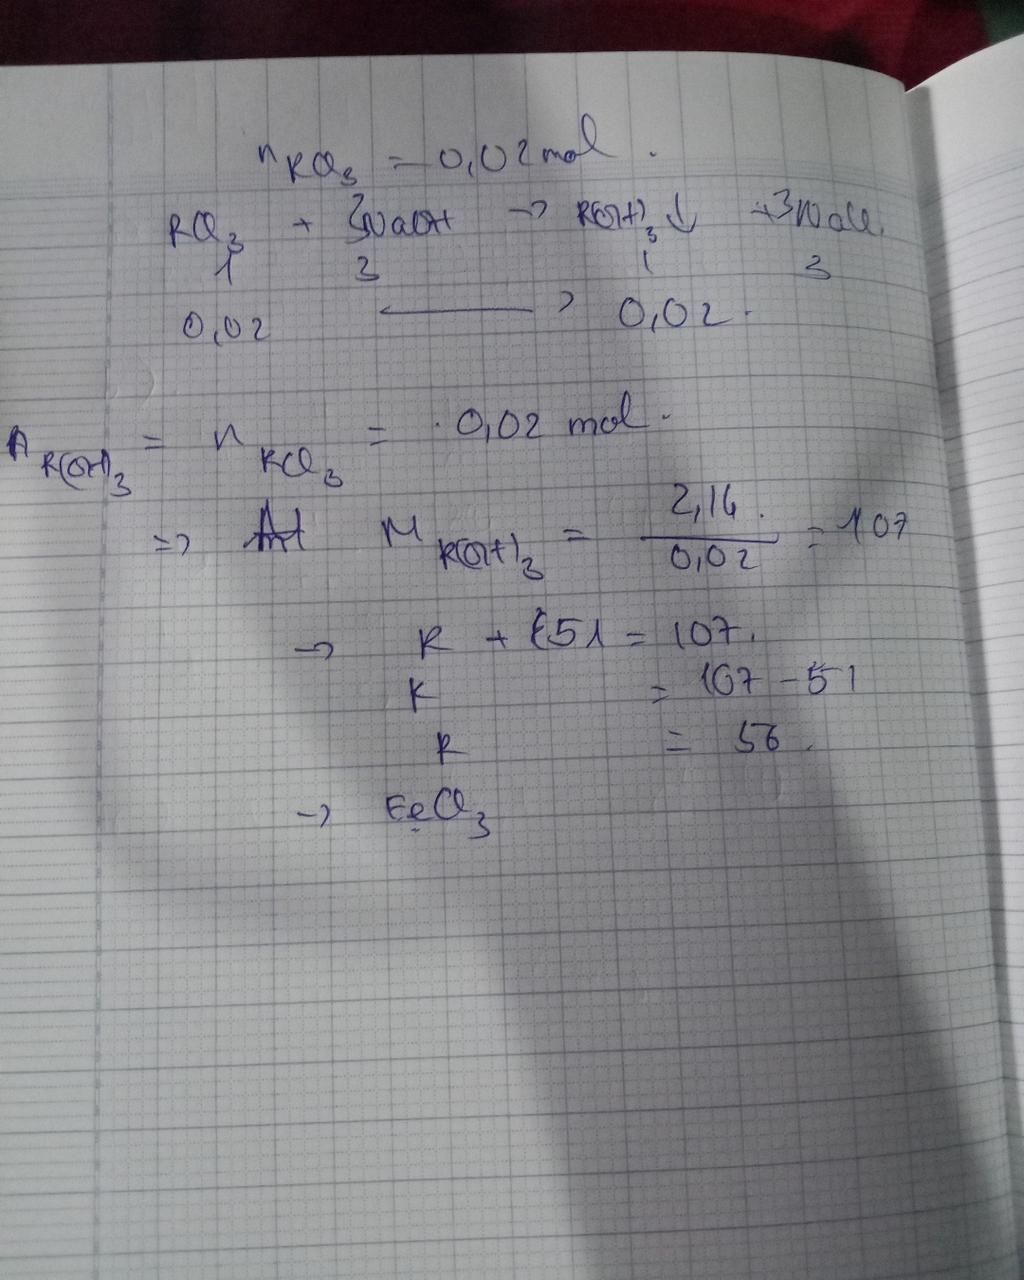 nRCl3 = 0,02 mol.
RCl3 + 3NaOH → R(OH)3 ↓ + 3NaCl.
1 3 1 3
0,02 ⟷ 0,02.
nR(OH)3 = nRCl3 = 0,02 mol.
=> MR(OH)3 = 2,14 / 0,02 = 107
→ R + 51 = 107.
R = 107 - 51
R = 56.
→ FeCl3